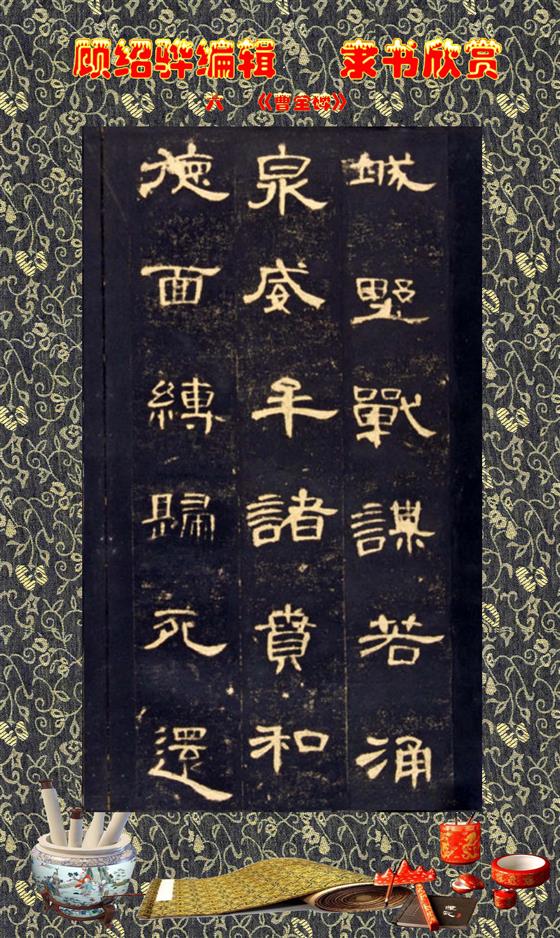 顾绍骅编辑 隶书欣赏
六 《曹全碑》
城野戰謀若涌
泉威牟諸賁和
德面縛歸死還